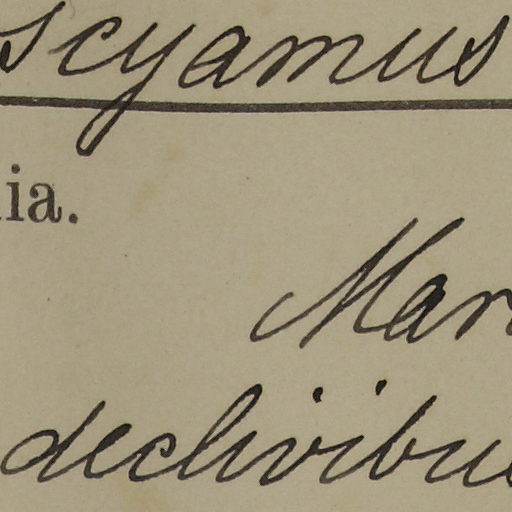 scyamus
ia.
Mar
declivibu